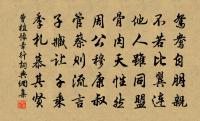 鴛鴦自朋親
不若比翼連
他人雖同盟
骨肉天性然
周公穆康叔
管蔡則流言
子臧讓千乘
季札慕其賢
曹植豫章行詞典網集